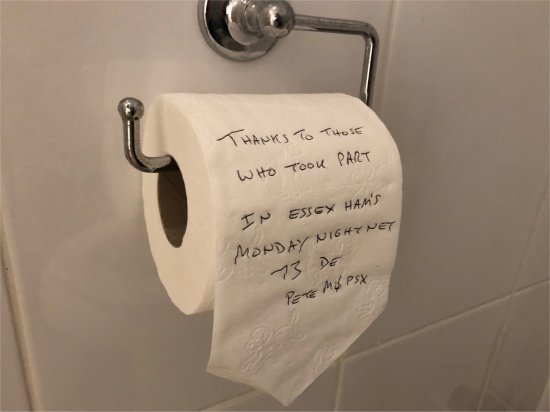 THANKS TO THOSE
WHO TOOK PART
IN ESSEX HAM'S
MONDAY NIGHT NET
73 DE
PETE MØPSX